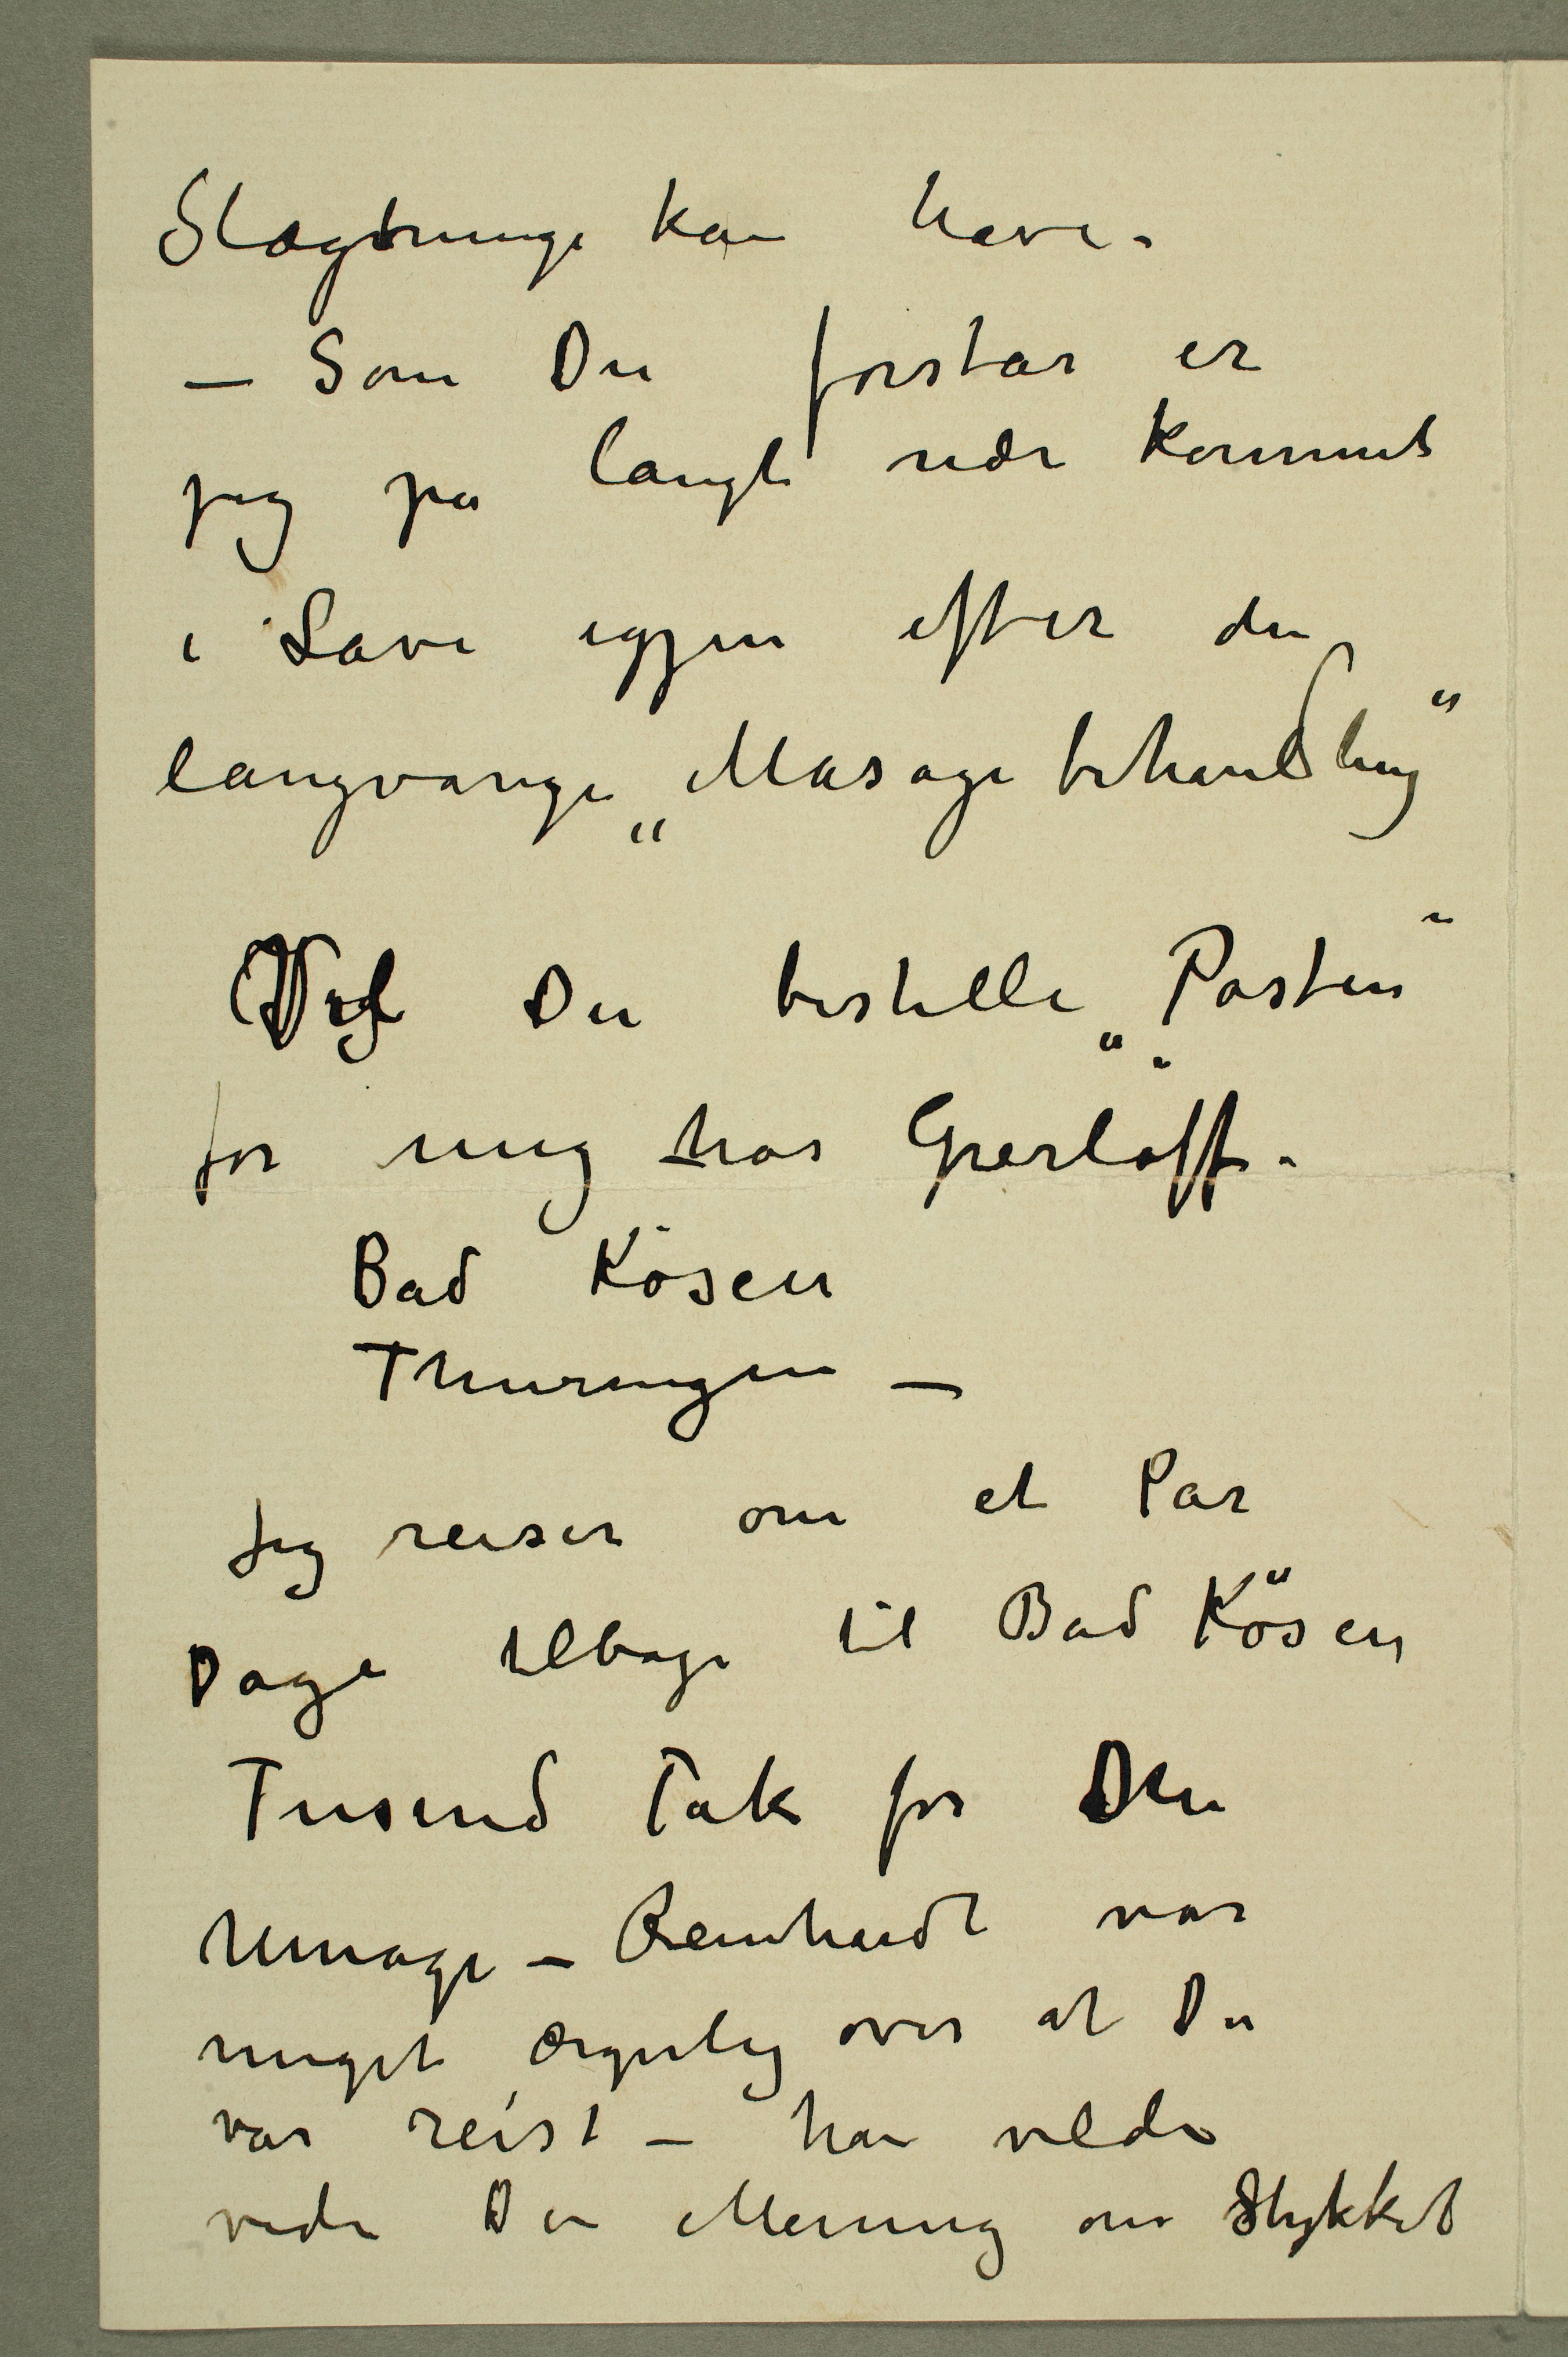 Slægtninge kan have.
— Som Du forstår er
jeg på langt nær kommet
i Lave igjen efter den
langvarige „Masagebehandling"
Vil Du bestille „Posten"
for mig hos Gierløff.
Bad Kösen
Thuringen —
Jeg reiser om et Par
Dage tilbage til Bad Kösen
Tusend Tak for Din
Umage – Reinhardt var
meget ærgerlig over at Du
var reist – han vilde
vide Din Mening om Stykket